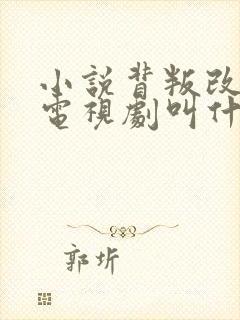 小說背叛改
電視劇叫什
郭圻